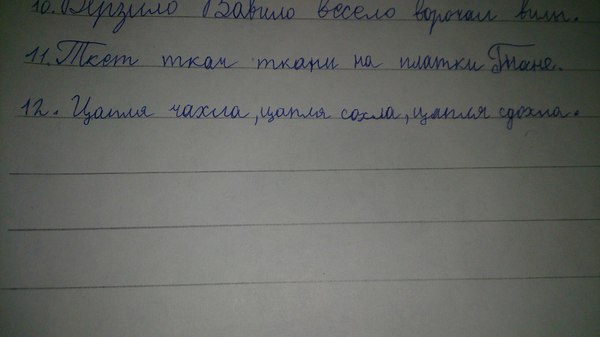 10. Верзило Вавило весело ворочал вилы.
11. Ткет ткач ткани на платки Тане.
12. Цапля чахла, цапля сохла, цапля сдохла.